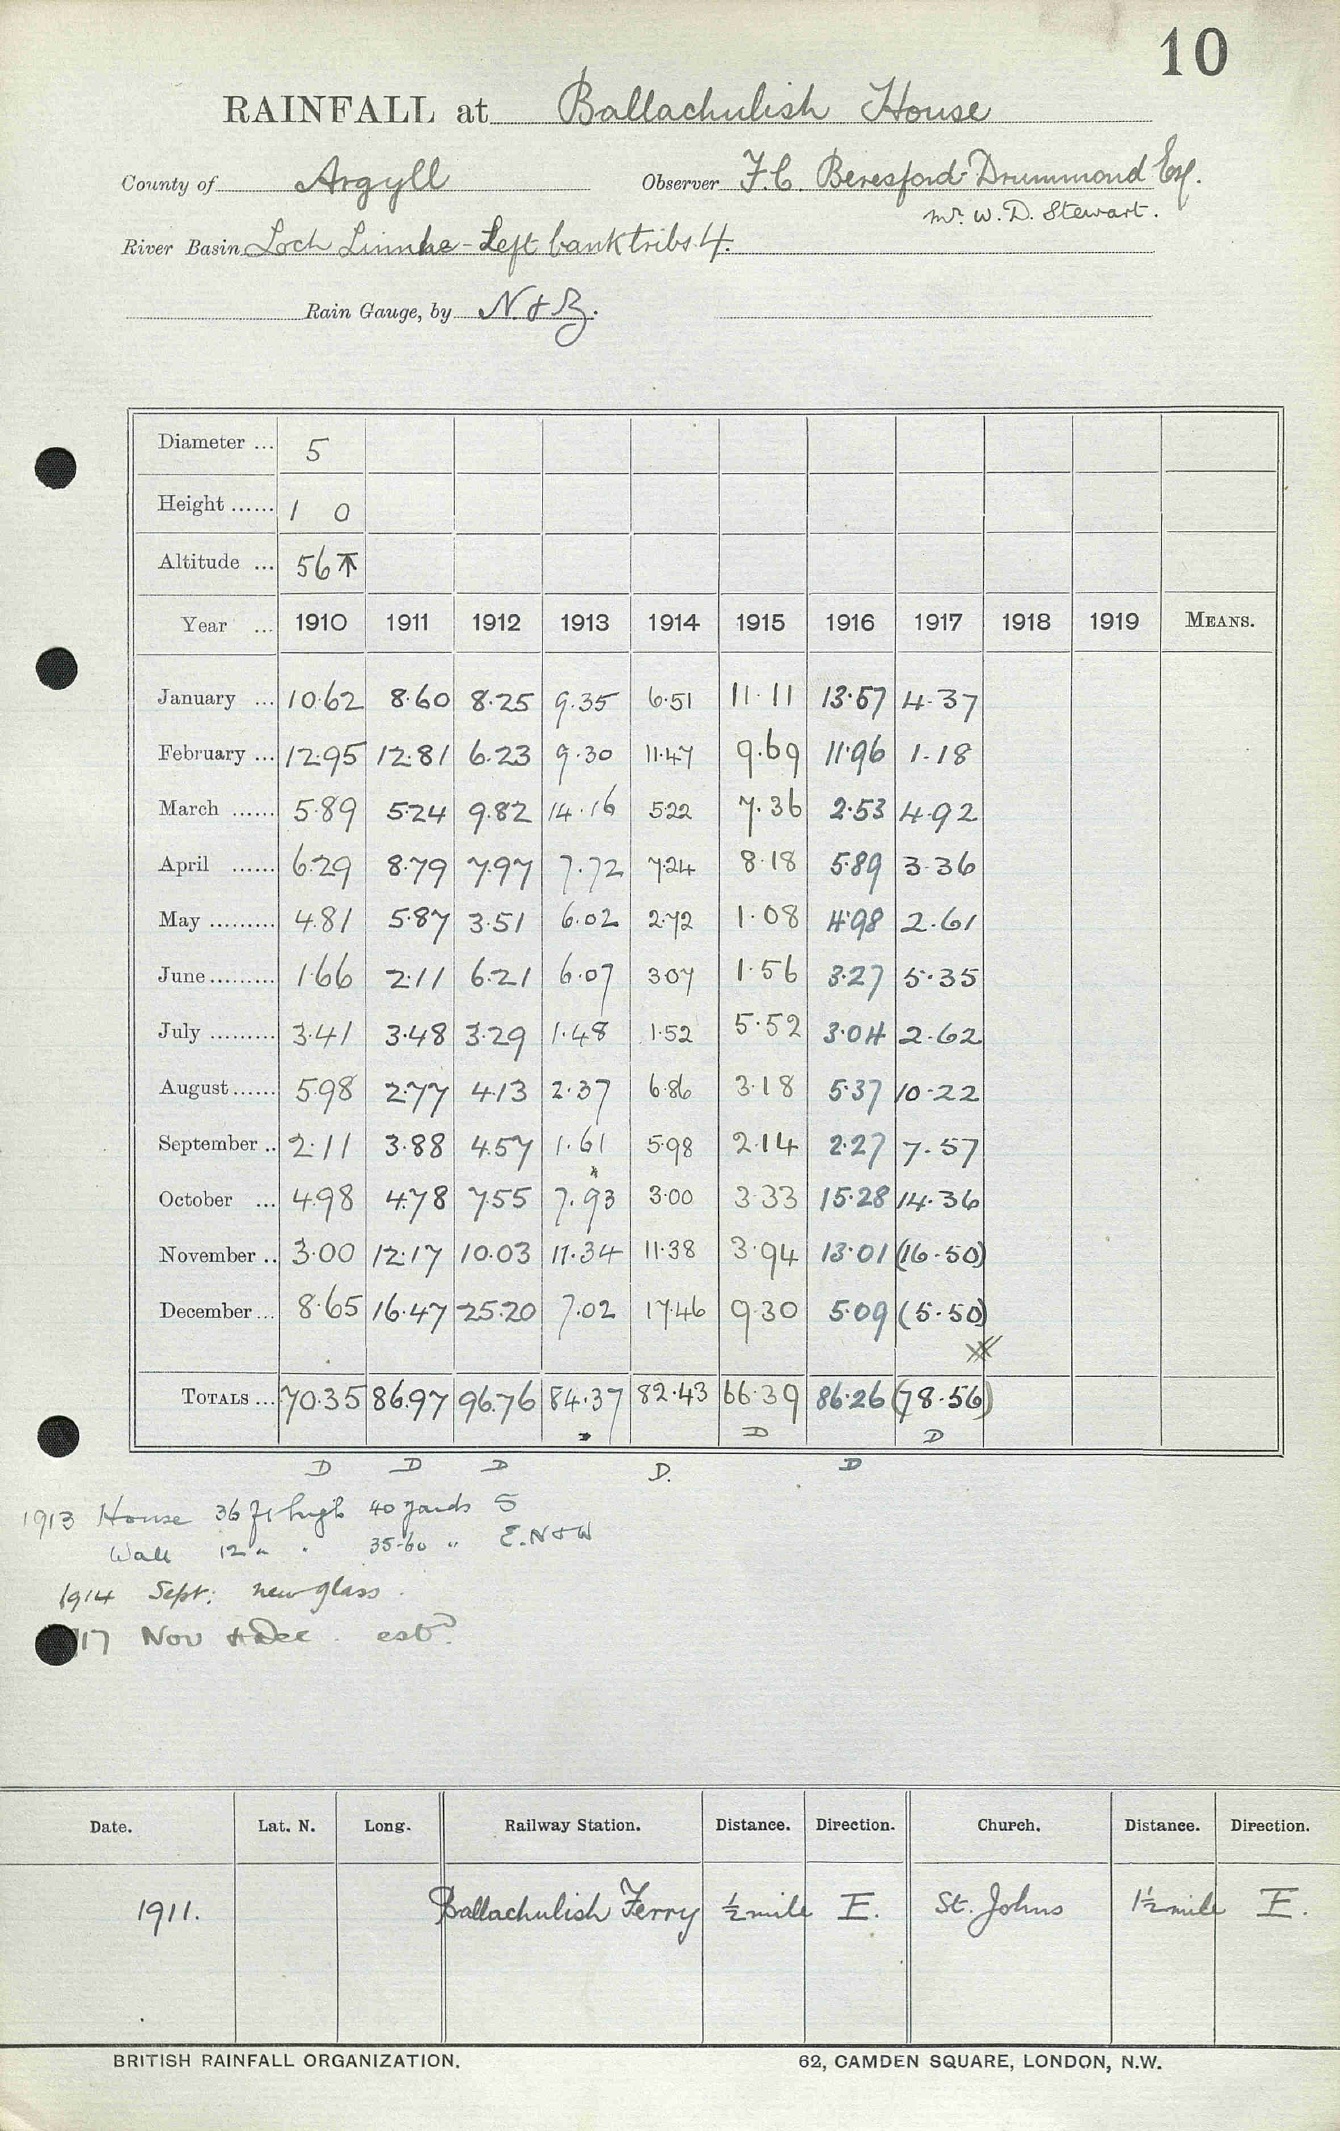 10
RAINFALL at Ballachulish House
County of Argyll Observer F.C. Beresford-Drummond Esq.
Mr. W. D. Stewart.
River Basin Loch Linnhe - Left bank tribs. 4.
Rain Gauge, by N. & Z.
Diameter ... 5
Height ...... 1 0
Altitude ... 56
Year ... 1910 1911 1912 1913 1914 1915 1916 1917 1918 1919 MEANS.
January ... 10.62 8.60 8.25 9.35 6.51 11.11 13.57 4.37
February ... 12.95 12.81 6.23 9.30 11.47 9.69 11.96 1.18
March ...... 5.89 5.24 9.82 14.16 5.22 7.36 2.53 4.92
April ...... 6.29 8.79 7.97 7.72 7.24 8.18 5.89 3.36
May ......... 4.81 5.87 3.51 6.02 2.72 1.08 4.98 2.61
June ......... 1.66 2.11 6.21 6.07 3.07 1.56 3.27 5.35
July ......... 3.41 3.48 3.29 1.48 1.52 5.52 3.04 2.62
August ...... 5.98 2.77 4.13 2.37 6.86 3.18 5.37 10.22
September .. 2.11 3.88 4.57 1.61 5.98 2.14 2.27 7.57
October ... 4.98 4.78 7.55 7.93 3.00 3.33 15.28 14.36
November .. 3.00 12.17 10.03 11.34 11.38 3.94 13.01 (16.50)
December ... 8.65 16.47 25.20 7.02 17.46 9.30 5.09 (5.50)
TOTALS ... 70.35 86.97 96.76 84.37 82.43 66.39 86.26 (78.56)
D D
D D D D. D
1913 House 36 ft high 40 yards S
Wall 12 " " 35-60 " E. N & W
1914 Sept: new glass.
17 Nov & Dec. estd.
Date. Lat. N. Long. Railway Station. Distance. Direction. Church. Distance. Direction.
1911. Ballachulish Ferry ½ mile E. St. Johns 1½ mile E.
BRITISH RAINFALL ORGANIZATION. 62, CAMDEN SQUARE, LONDON, N.W.